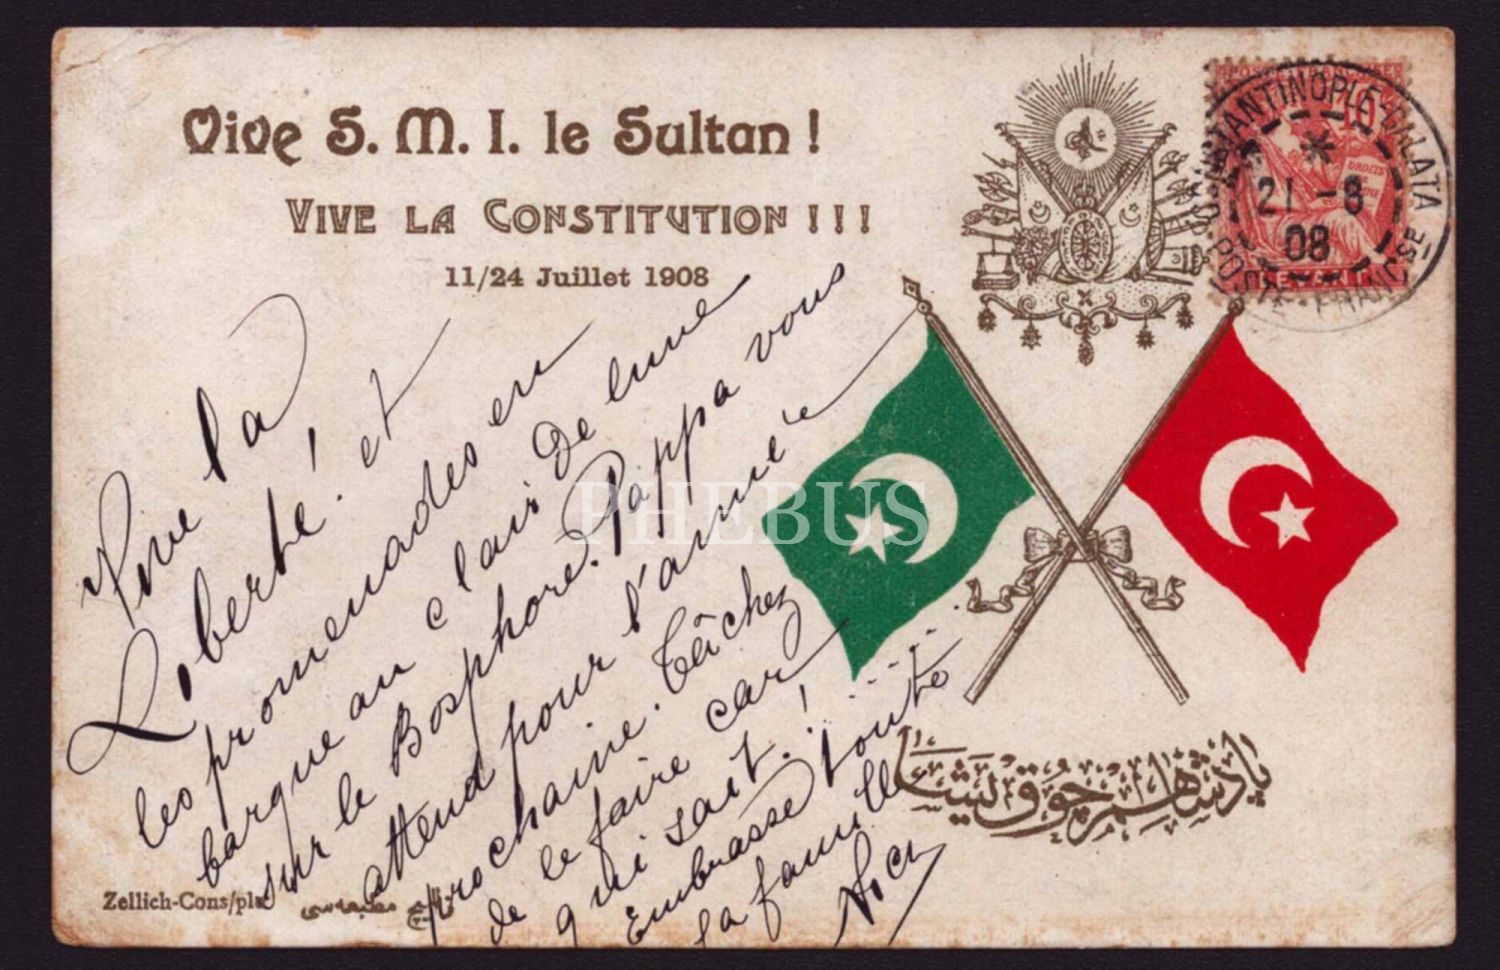 Vive S. M. I. le Sultan !
VIVE LA CONSTITUTION ! ! !
11/24 Juillet 1908
POSTE FRANÇAISE
10
DROITS
DE
CONSTANTINOPLE-GALATA
*
21 - 8
08
POSTE FRANÇSE
Vive la
Liberté! et
les promenades en
barque au clair de lune
sur le Bosphore. Pappa vous
attend pour l'année
prochaine. Tâchez
de le faire car
qui sait..!
Embrasse toute
la famille
PHEBUS
پادشاهم چوق یشا
Zellich-Cons/ple